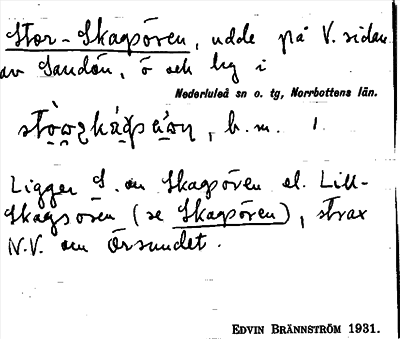 Stor-Skagsören, udde på V. sidan
av Sandön, ö och by i
Nederluleå sn o. tg, Norrbottens län.
b. m. 1.
Ligger S. om Skagsören el. Lill-
Skagsören (se Skagsören), strax
N.V. om Örsundet.
EDVIN BRÄNNSTRÖM 1931.